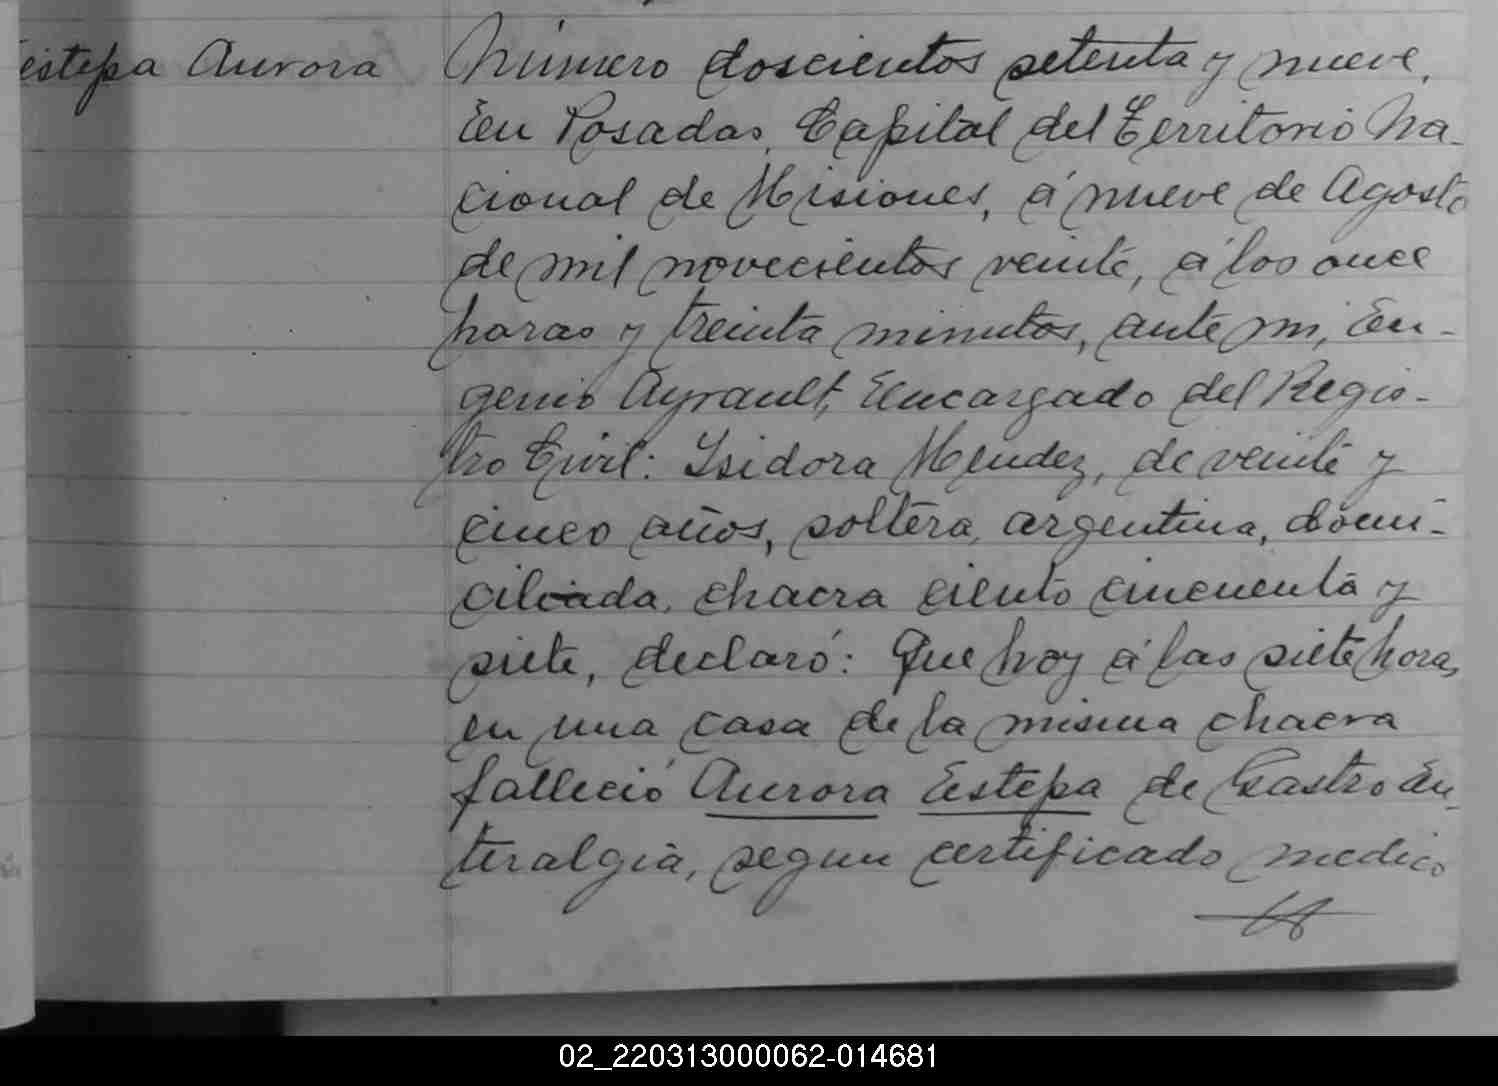 Estepa Aurora
Número doscientos setenta y nueve,
En Posadas, Capital del Territorio Na-
cional de Misiones, á nueve de Agosto
de mil novecientos veinte, á las once
horas y treinta minutos, ante mi, Eu-
genio Ayrault, Encargado del Regis-
tro Civil: Isidora Mendez, de veinte y
cinco años, soltera, argentina, domi-
ciliada, chacra ciento cincuenta y
siete, declaró: Que hoy á las siete horas
en una casa de la misma chacra
falleció Aurora Estepa de Gastro En-
teralgia, segun certificado medico
02_220313000062-014681